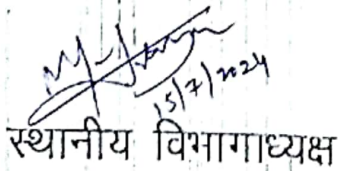 15/7/2024
स्थानीय विभागाध्यक्ष